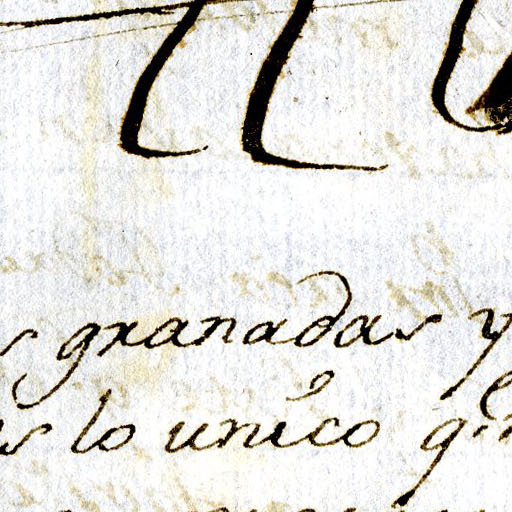 s granadas y
s lo unico q.e